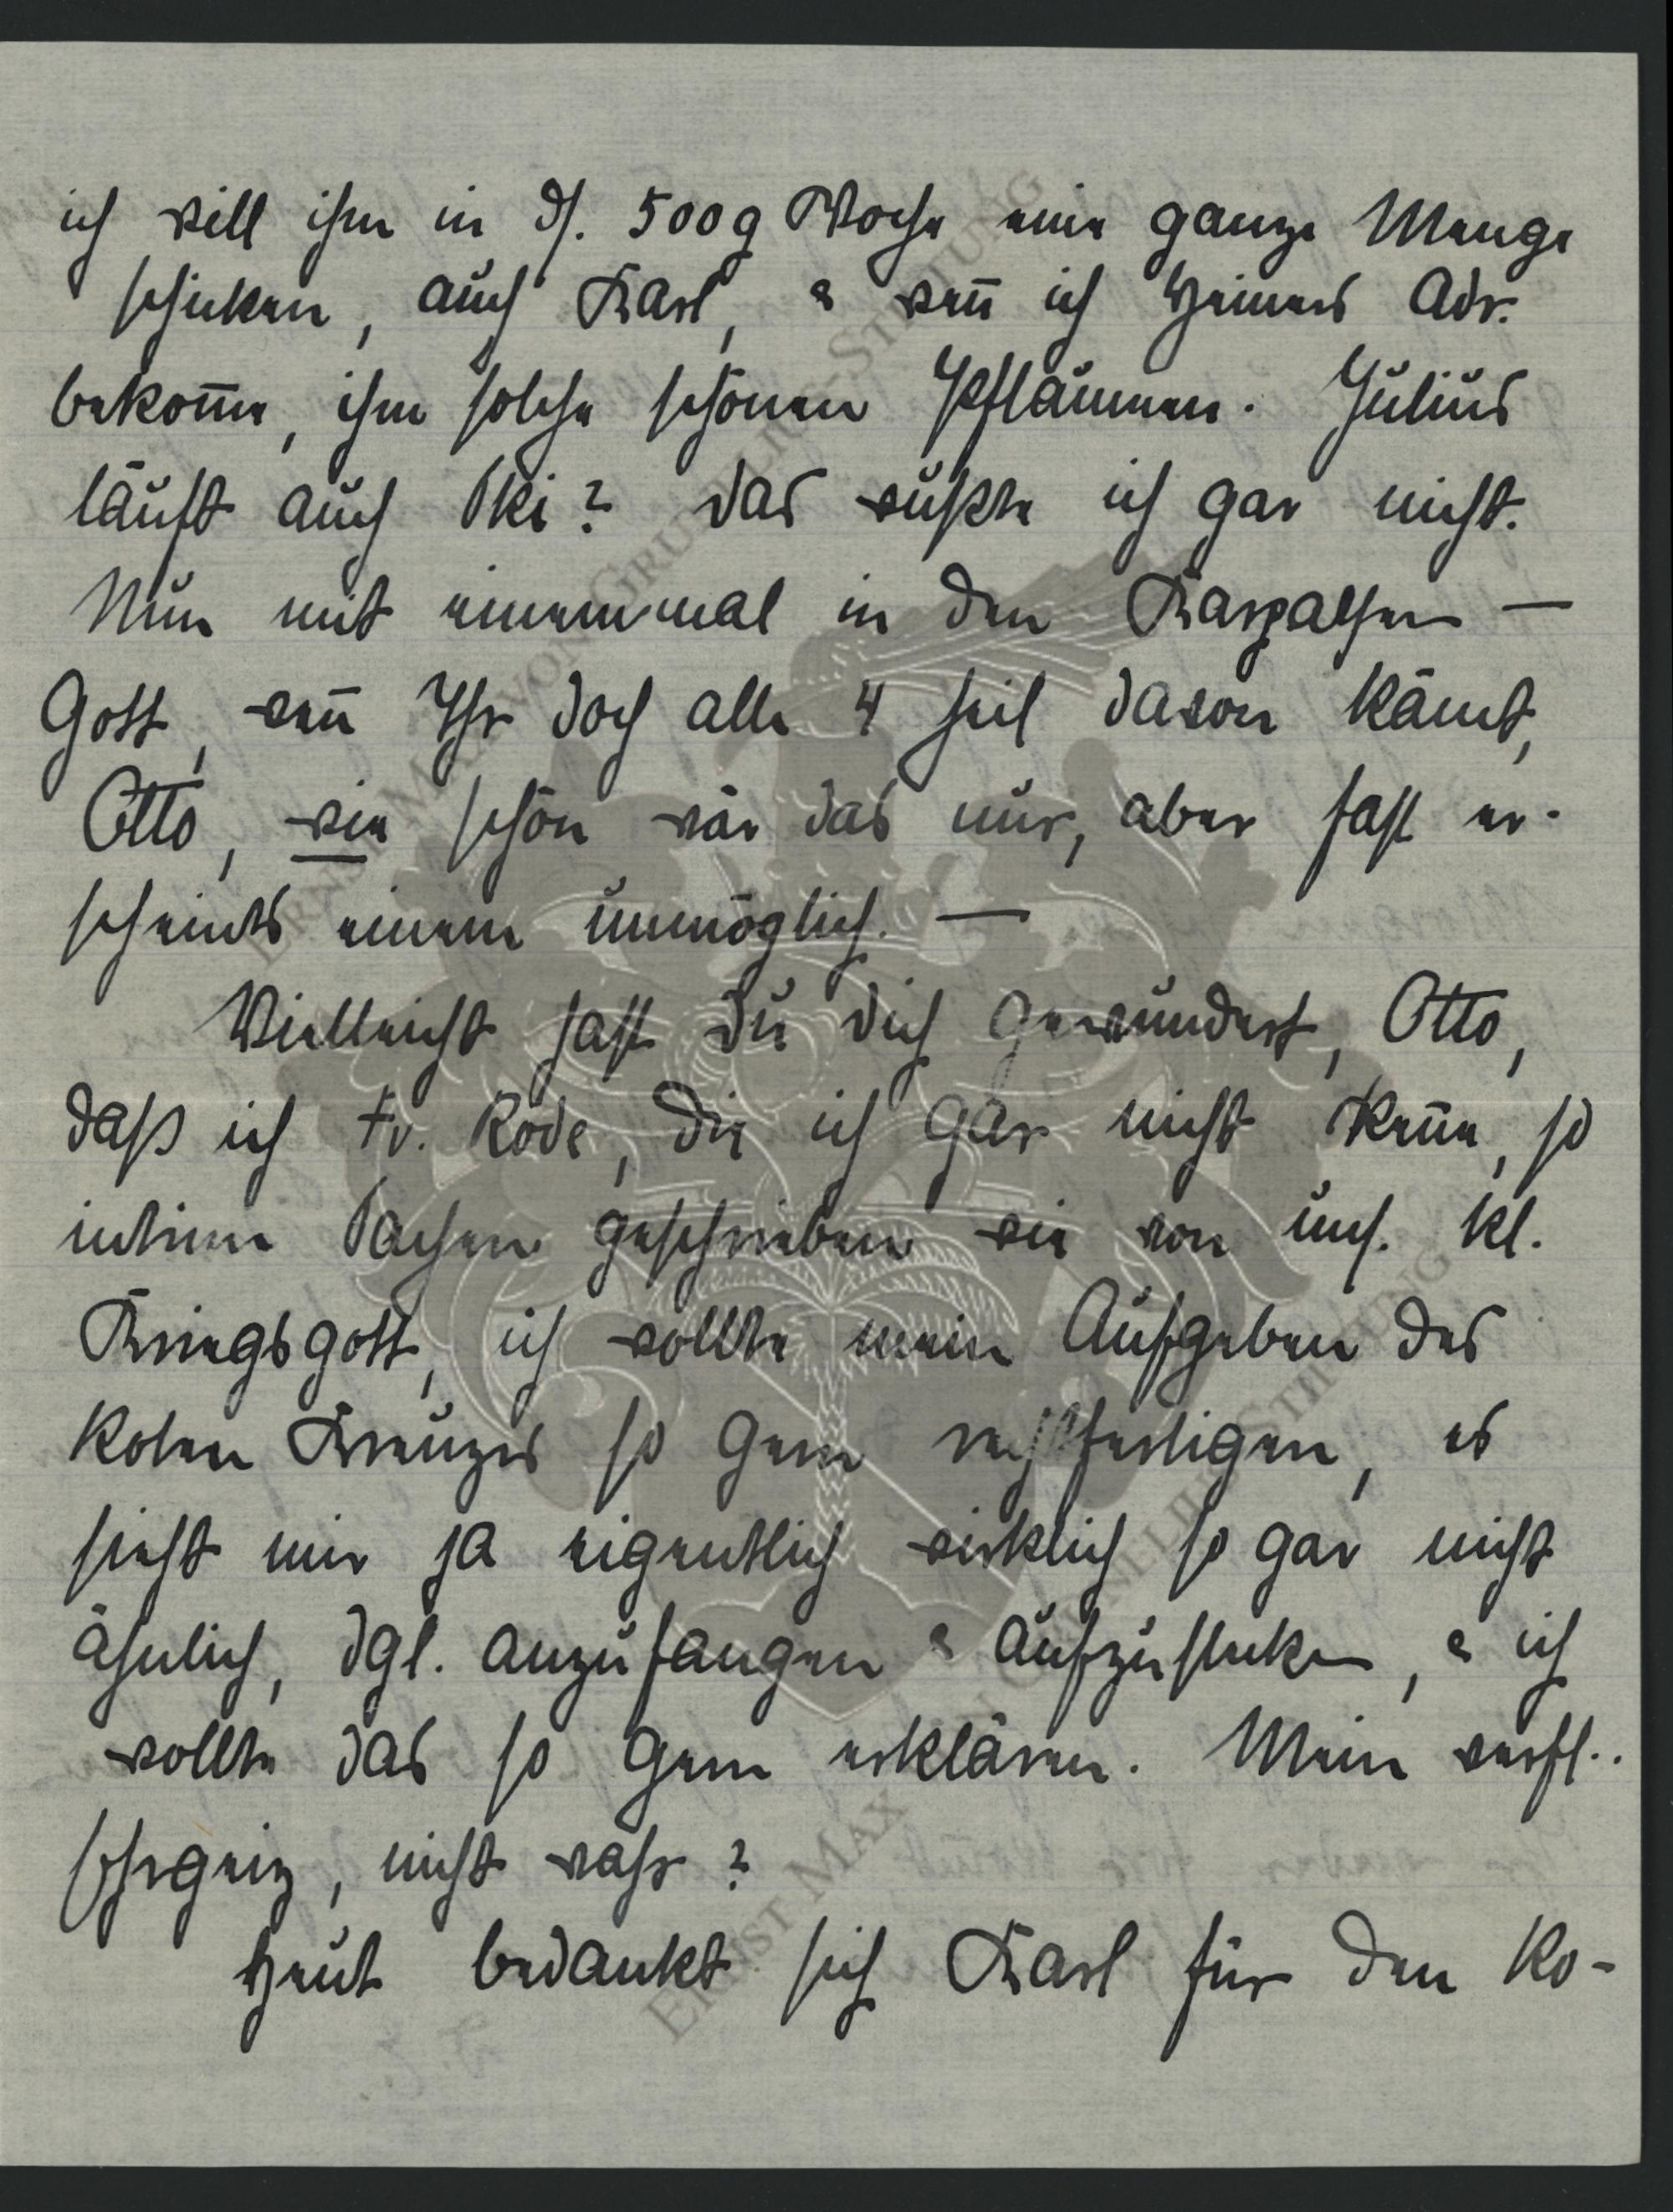 ich will ihm in ds. 500g Woche eine ganze Menge
schicken, auch Karl, & weñ ich Heiners Adr.
bekom̄e, ihm solche schönen Pflaumen. Julius
läuft auch Ski? Das wußte ich gar nicht.
Nun mit einemmal in den Karpathen —
Gott, weñ Ihr doch alle 4 heil davon kämt,
Otto, wie schön wär das nur, aber fast er-
scheints einem unmöglich. —
Vielleicht hast Du Dich gewundert, Otto,
daß ich Fr. Rode, die ich gar nicht keñe, so
intime Sachen geschrieben wie von uns. kl.
Kriegsgott, ich wollte mein Aufgeben des
Roten Kreuzes so gern rechtfertigen, es
sieht mir ja eigentlich wirklich so gar nicht
ähnlich, dgl. anzufangen & aufzustecken, & ich
wollte das so gern erklären. Mein verfl..
Ehrgeiz, nicht wahr?
Heut bedankt sich Karl für den Ko-
ERNST MAX VON GRUNELIUS-STIFTUNG
ERNST MAX VON GRUNELIUS-STIFTUNG